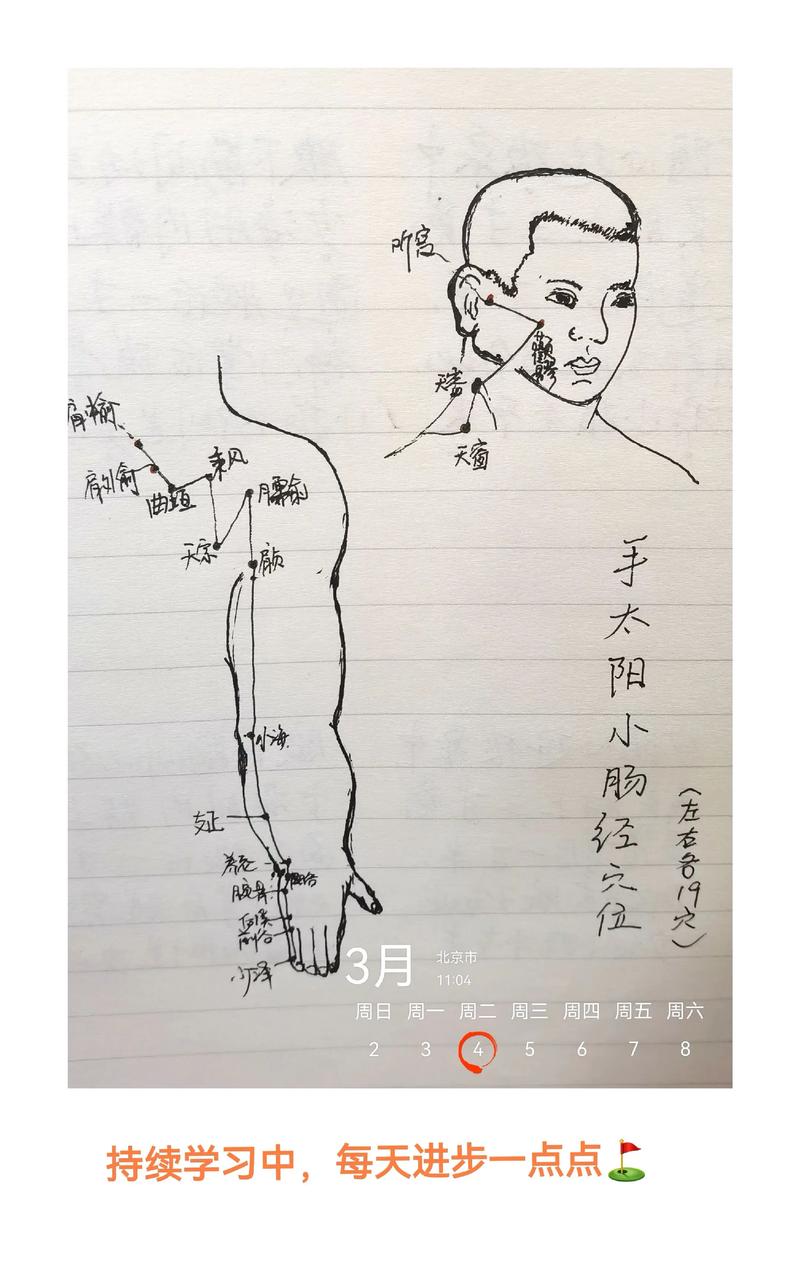 听宫
颧髎
天容
天窗
肩中俞
肩外俞
曲垣
秉风
臑俞
天宗
肩贞
小海
支正
养老
腕骨
后溪
前谷
少泽
手太阳小肠经穴位
(左右各19穴)
3月
北京市
11:04
周日 周一 周二 周三 周四 周五 周六
2 3 4 5 6 7 8
持续学习中，每天进步一点点⛳